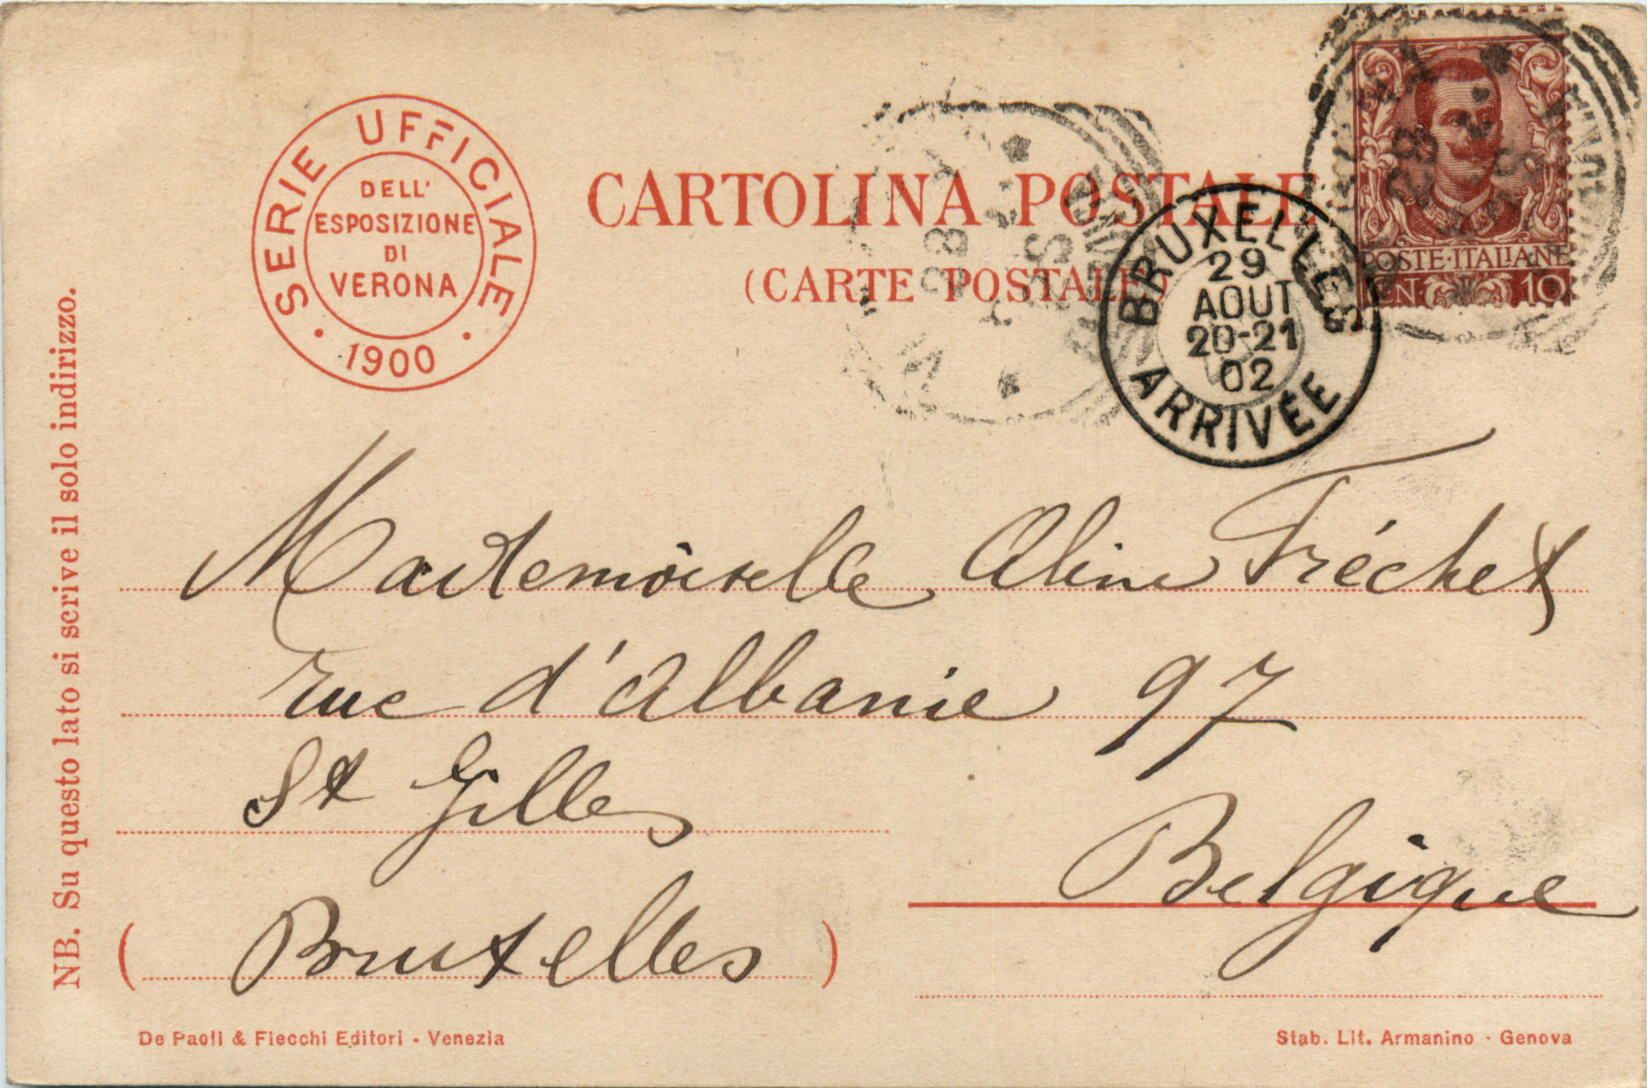 SERIE UFFICIALE
DELL'
ESPOSIZIONE
DI
VERONA
· 1900 ·
CARTOLINA POSTALE
(CARTE POSTALE)
POSTE·ITALIANE
CEN 10
BRUXELLES
29
AOUT
20-21
02
ARRIVÉE
NB. Su questo lato si scrive il solo indirizzo.
Mademoiselle Aline Fréchet
rue d'Albanie 97
St Gilles
Belgique
(Bruxelles)
De Paoli & Fiecchi Editori - Venezia
Stab. Lit. Armanino - Genova